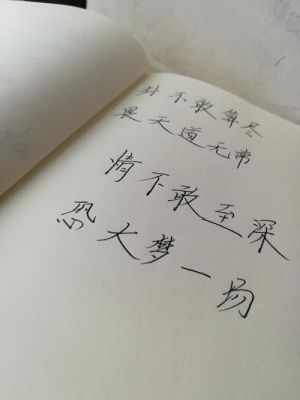 卦不敢算尽
畏天道无常
情不敢至深
恐大梦一场